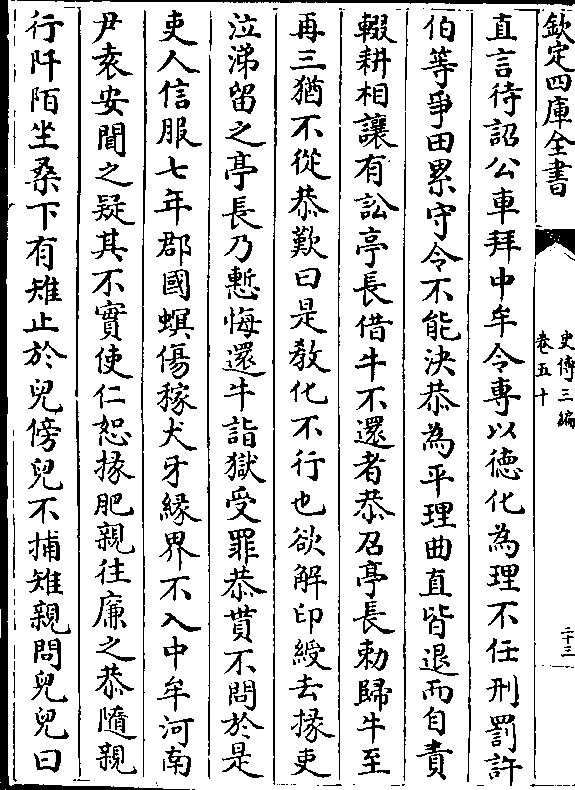 欽定四庫全書
史傳三編
卷五十
二十三
直言待詔公車拜中牟令專以德化為理不任刑罰許
伯等爭田累守令不能決恭為平理曲直皆退而自責
輟耕相讓有訟亭長借牛不還者恭召亭長勅歸牛至
再三猶不從恭歎曰是教化不行也欲解印綬去掾吏
泣涕留之亭長乃慙悔還牛詣獄受罪恭貰不問於是
吏人信服七年郡國螟傷稼犬牙緣界不入中牟河南
尹袁安聞之疑其不實使仁恕掾肥親往廉之恭隨親
行阡陌坐桑下有雉止於兒傍兒不捕雉親問兒兒曰